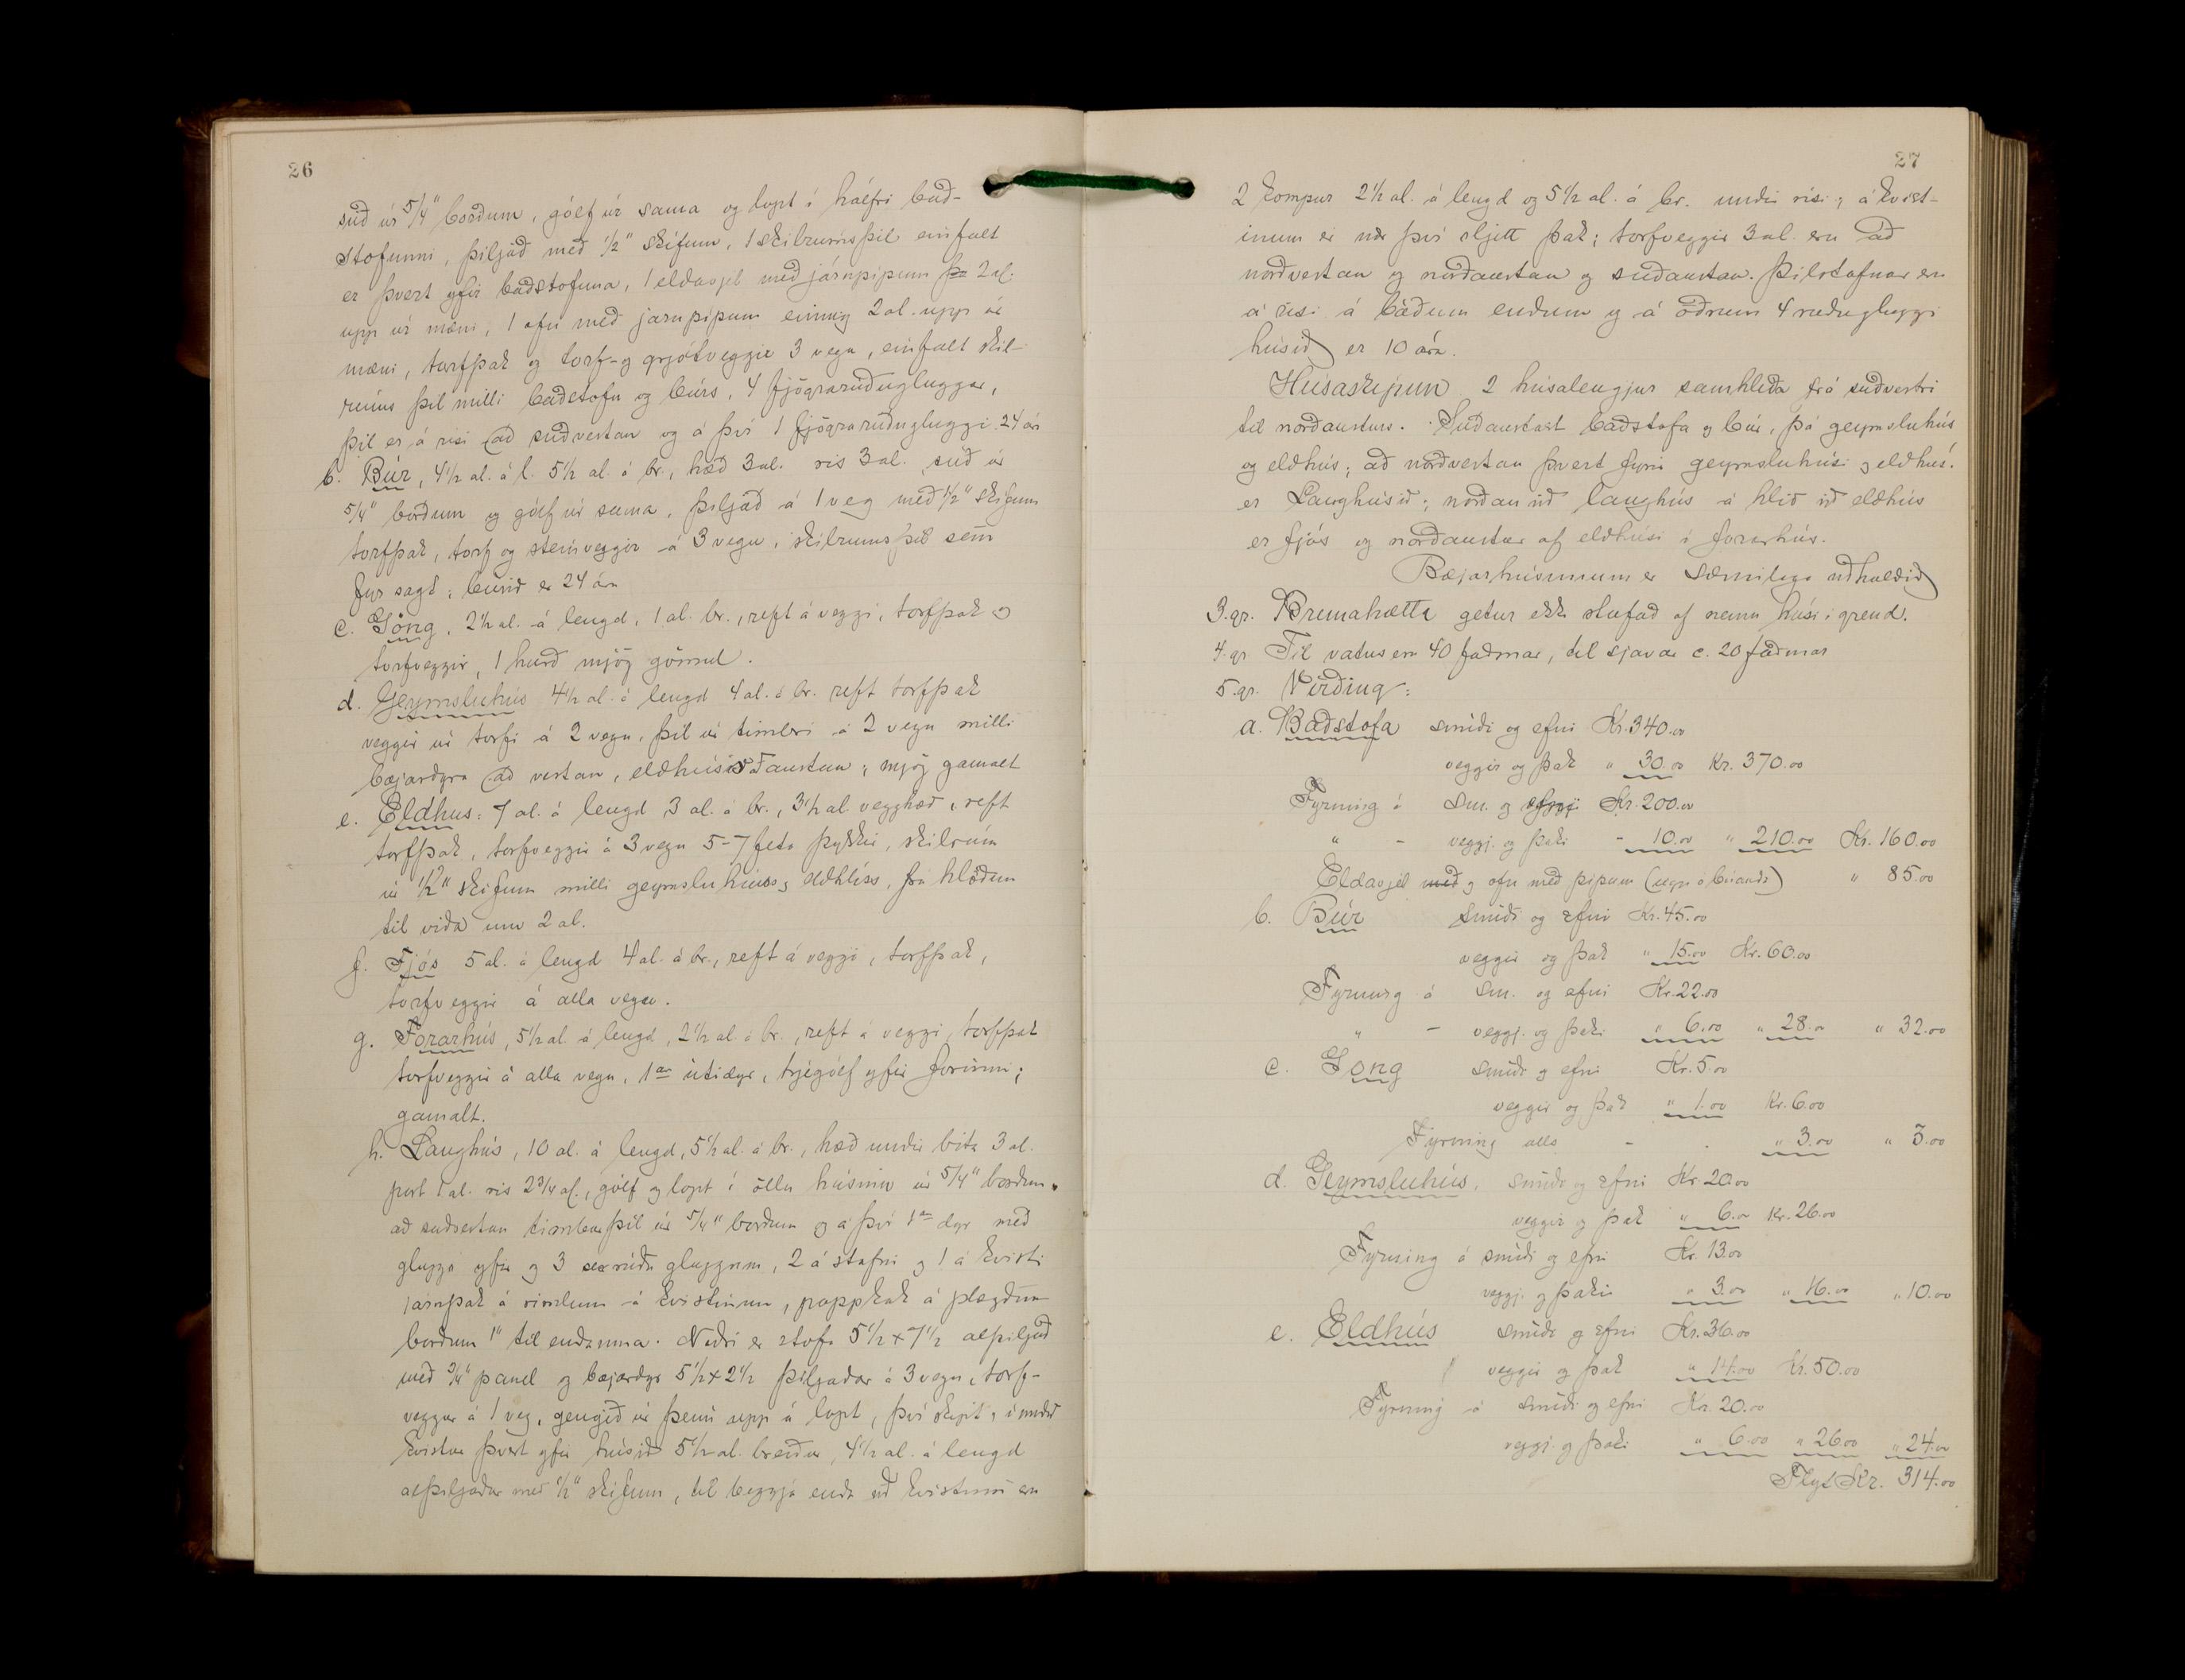 26
súð úr 5/4" borðum, gólf úr sama og lopt í hálfri bað-
stofunni, þiljað með 1/2" skífum, 1 skilrúmsþil einfalt
er þvert yfir baðstofuna, 1 eldavjel með járnpípum 2 al.
upp úr mæni, 1 ofn með jarnpípum einnig 2 al. upp úr
mæni, torfþak og torf- og grjótveggir 3 vegu, einfalt skil-
rúms þil milli baðstofu og búrs, 4 fjögrarúðugluggar,
þil er á risi að suðvestan og á því 1 fjögrarúðugluggi. 24 ára
b. Búr, 4 1/2 al. á l. 5 1/2 al. á br., hæð 3 al. ris 3 al. súð úr
5/4" borðum og gólf úr sama, þiljað á 1 veg með 1/2" skífum
torfþak, torf og steinveggir á 3 vegu, skilrumsþil sem
fyr sagt; búrið er 24 ára
c. Göng, 2 1/2 al. á lengd, 1 al. br., reft á veggi, torfþak og
torfveggir, 1 hurð mjög gömul.
d. Geymsluhús 4 1/2 al. á lengd 4 al. á br. reft torfþak
veggir úr torfi á 2 vegu, þil úr timbri á 2 vegu milli
bæjardyra að vestan, eldhúss austan; mjög gamalt
e. Eldhus: 7 al. á lengd 3 al. á br., 3 1/2 al vegghæð, reft
torfþak, torfveggir á 3 vegu 5-7 feta þykkir, skilrúm
úr 1/2" skífum milli geymsluhúss og eldhúss, frá hlóðum
til viða um 2 al.
f. Fjós 5 al. á lengd 4 al. á br., reft á veggi, torfþak,
torfveggir á alla vegu.
g. Forarhús, 5 1/2 al á lengd, 2 1/2 al. á br., reft á veggi, torfþak
torfveggir á alla vegu, 1ar útidyr, trjególf yfir forinni;
gamalt.
h. Langhús, 10 al. á lengd, 5 1/2 al. á br., hæð undir bita 3 al.
port 1 al. ris 2 3/4 al., gólf og lopt í öllu húsinu úr 5/4" borðum.
að suðvestan timburþil úr 5/4" borðum og á því 1ar dyr með
glugga yfir og 3 sexrúðu gluggum, 2 á stafni og 1 á kvisti
járnþak á rimlum á kvistinum, pappþak á plægðum
borðum 1" til endanna. Niðri er stofa 5 1/2 x 7 1/2 alþiljuð
með 3/4" panel og bæjardyr 5 1/2 x 2 1/2 þiljaðar á 3 vegu, torf-
veggur á 1 veg, gengið úr þeim upp á lopt, því skipt, í miðið
kvistur þvert yfir húsið 5 1/2 al. breiður, 4 1/2 al. á lengd
alþiljaður með 1/2" skífum, til beggja enda við kvistinn eru
27
2 kompur 2 1/2 al. á lengd og 5 1/2 al. á br. undir risi; á kvist-
inum er nær því sljett þak; torfveggir 3 al. eru að
norðvestan og norðaustan og suðaustan. Þilstafnar eru
á risi á báðum endum og á öðrum 4 ruðugluggi
húsið er 10 ára.
Húsaskipun 2 húsalengjur samhliða frá suðvestri
til norðausturs. Suðaustast baðstofa og búr, þá geymsluhús
og eldhús; að norðvestan þvert fyrir geymsluhúsi og eldhús.
er Langhúsið; norðan við langhús á hlið við eldhús
er fjós og norðaustur af eldhúsi í forarhús.
Bæjarhúsunum er sæmilega viðhaldið
3. gr. Brunahætta getur ekki stafað af neinu húsi í grend.
4. gr. Til vatns eru 40 faðmar, til sjávar c. 20 faðmar
5. gr. Virðing:
a. Baðstofa smíði og efni Kr. 340.00
veggir og þak " 30.00 Kr. 370.00
Fyrning á sm. og efni Kr. 200.00
" - veggj. og þaki - 10.00 " 210.00 Kr. 160.00
Eldavjel með og ofn með pípum (eign ábúanda) " 85.00
b. Búr smíði og efni Kr. 45.00
veggir og þak " 15.00 Kr. 60.00
Fyrning á sm. og efni Kr. 22.00
" - veggj. og þaki " 6.00 " 28.00 " 32.00
c. Göng smíði og efni Kr. 5.00
veggir og þak " 1.00 Kr. 6.00
Fyrning alls - - " 3.00 " 3.00
d. Geymsluhús, smíði og efni Kr. 20.00
veggir og þak " 6.00 Kr. 26.00
Fyrning á smíði og efni Kr. 13.00
veggj. og þaki " 3.00 " 16.00 " 10.00
e. Eldhús smíði og efni Kr. 36.00
veggir og þak " 14.00 Kr. 50.00
Fyrning á smíði og efni Kr. 20.00
veggj. og þaki " 6.00 " 26.00 " 24.00
Flyt Kr. 314.00